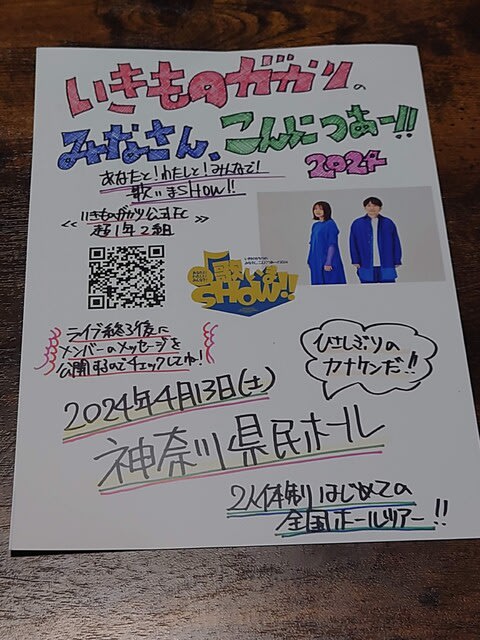 いきものがかりの
みなさん、こんにつあー!!
2024
あなたと!わたしと!みんなで!
歌いまSHOW!!
<<いきものがかり公式FC>>
超1年2組
歌いま
SHOW!!
ライブ終了後に
メンバーのメッセージを
公開するのでチェックしてね!
ひさしぶりの
カナケンだ!!
2024年4月13日(土)
神奈川県民ホール
2人体制はじめての
全国ホールツアー!!